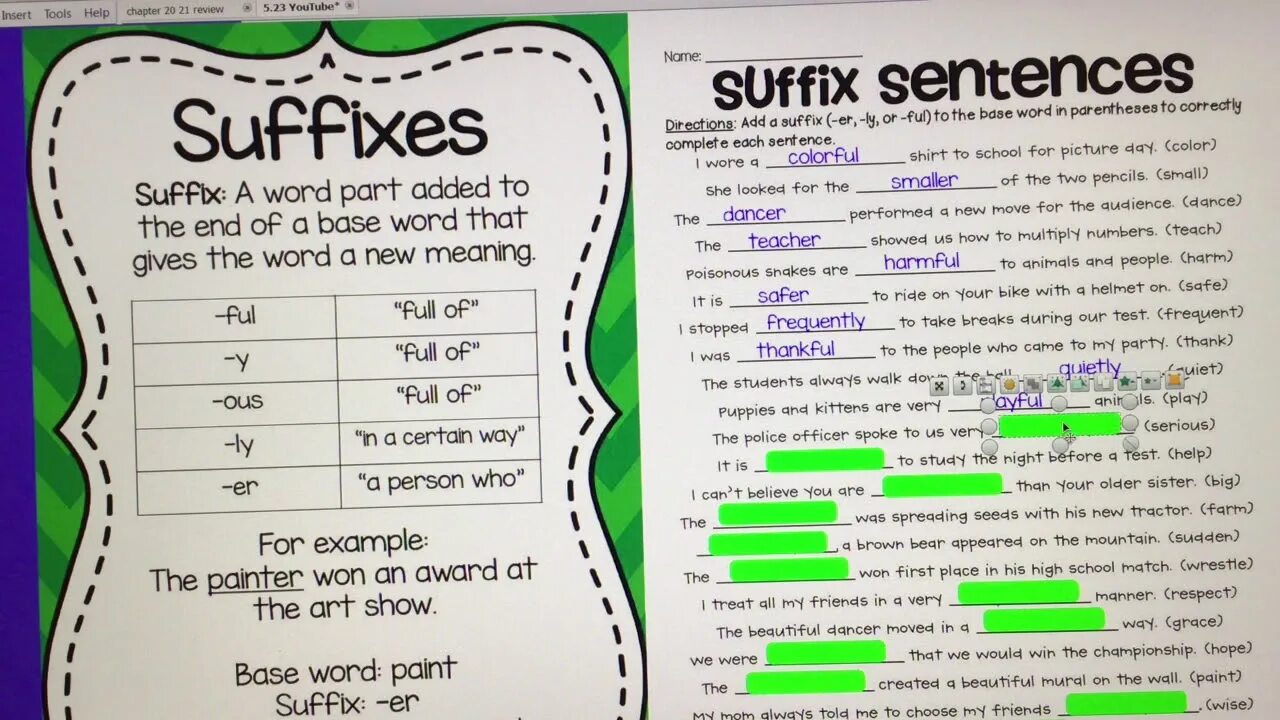 Insert Tools Help chapter 20 21 review 5.23 YouTube*
Suffixes
Suffix: A word part added to
the end of a base word that
gives the word a new meaning.
-ful "full of"
-y "full of"
-ous "full of"
-ly "in a certain way"
-er "a person who"
For example:
The painter won an award at
the art show.
Base word: paint
Suffix: -er
Name:
Suffix Sentences
Directions: Add a suffix (-er, -ly, or -ful) to the base word in parentheses to correctly
complete each sentence.
I wore a colorful shirt to school for picture day. (color)
She looked for the smaller of the two pencils. (small)
The dancer performed a new move for the audience. (dance)
The teacher showed us how to multiply numbers. (teach)
Poisonous snakes are harmful to animals and people. (harm)
It is safer to ride on your bike with a helmet on. (safe)
I stopped frequently to take breaks during our test. (frequent)
I was thankful to the people who came to my party. (thank)
The students always walk down the hall quietly
Puppies and kittens are very animals. (play)
The police officer spoke to us very (serious)
It is to study the night before a test. (help)
I can't believe you are than your older sister. (big)
The was spreading seeds with his new tractor. (farm)
, a brown bear appeared on the mountain. (sudden)
The won first place in his high school match. (wrestle)
I treat all my friends in a very manner. (respect)
The beautiful dancer moved in a way. (grace)
We were that we would win the championship. (hope)
The created a beautiful mural on the wall. (paint)
My mom always told me to choose my friends . (wise)